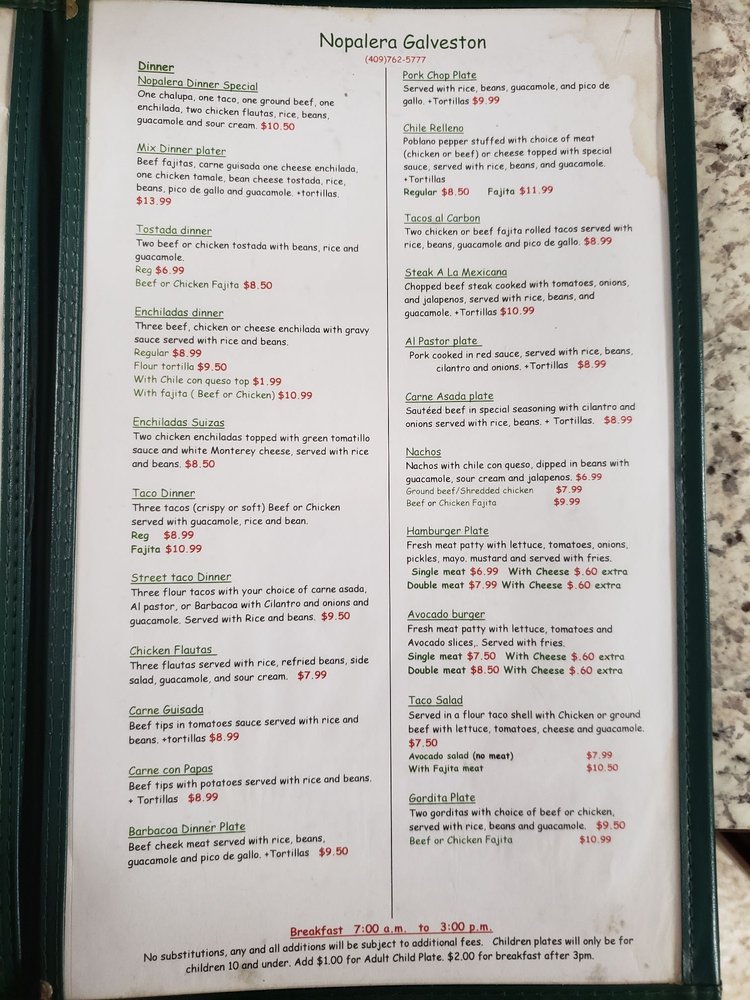 Nopalera Galveston
(409)762-5777
Dinner
Nopalera Dinner Special
One chalupa, one taco, one ground beef, one
enchilada, two chicken flautas, rice, beans,
guacamole and sour cream. $10.50
Mix Dinner plater
Beef fajitas, carne guisada one cheese enchilada,
one chicken tamale, bean cheese tostada, rice,
beans, pico de gallo and guacamole. +tortillas.
$13.99
Tostada dinner
Two beef or chicken tostada with beans, rice and
guacamole.
Reg $6.99
Beef or Chicken Fajita $8.50
Enchiladas dinner
Three beef, chicken or cheese enchilada with gravy
sauce served with rice and beans.
Regular $8.99
Flour tortilla $9.50
With Chile con queso top $1.99
With fajita ( Beef or Chicken) $10.99
Enchiladas Suizas
Two chicken enchiladas topped with green tomatillo
sauce and white Monterey cheese, served with rice
and beans. $8.50
Taco Dinner
Three tacos (crispy or soft) Beef or Chicken
served with guacamole, rice and bean.
Reg $8.99
Fajita $10.99
Street taco Dinner
Three flour tacos with your choice of carne asada,
Al pastor, or Barbacoa with Cilantro and onions and
guacamole. Served with Rice and beans. $9.50
Chicken Flautas
Three flautas served with rice, refried beans, side
salad, guacamole, and sour cream. $7.99
Carne Guisada
Beef tips in tomatoes sauce served with rice and
beans. +tortillas $8.99
Carne con Papas
Beef tips with potatoes served with rice and beans.
+ Tortillas $8.99
Barbacoa Dinner Plate
Beef cheek meat served with rice, beans,
guacamole and pico de gallo. +Tortillas $9.50
Pork Chop Plate
Served with rice, beans, guacamole, and pico de
gallo. +Tortillas $9.99
Chile Relleno
Poblano pepper stuffed with choice of meat
(chicken or beef) or cheese topped with special
sauce, served with rice, beans, and guacamole.
+Tortillas
Regular $8.50 Fajita $11.99
Tacos al Carbon
Two chicken or beef fajita rolled tacos served with
rice, beans, guacamole and pico de gallo. $8.99
Steak A La Mexicana
Chopped beef steak cooked with tomatoes, onions,
and jalapenos, served with rice, beans, and
guacamole. +Tortillas $10.99
Al Pastor plate
Pork cooked in red sauce, served with rice, beans,
cilantro and onions. +Tortillas $8.99
Carne Asada plate
Sautéed beef in special seasoning with cilantro and
onions served with rice, beans. + Tortillas. $8.99
Nachos
Nachos with chile con queso, dipped in beans with
guacamole, sour cream and jalapenos. $6.99
Ground beef/Shredded chicken $7.99
Beef or Chicken Fajita $9.99
Hamburger Plate
Fresh meat patty with lettuce, tomatoes, onions,
pickles, mayo, mustard and served with fries.
Single meat $6.99 With Cheese $.60 extra
Double meat $7.99 With Cheese $.60 extra
Avocado burger
Fresh meat patty with lettuce, tomatoes and
Avocado slices,. Served with fries.
Single meat $7.50 With Cheese $.60 extra
Double meat $8.50 With Cheese $.60 extra
Taco Salad
Served in a flour taco shell with Chicken or ground
beef with lettuce, tomatoes, cheese and guacamole.
$7.50
Avocado salad (no meat) $7.99
With Fajita meat $10.50
Gordita Plate
Two gorditas with choice of beef or chicken,
served with rice, beans and guacamole. $9.50
Beef or Chicken Fajita $10.99
Breakfast 7:00 a.m. to 3:00 p.m.
No substitutions, any and all additions will be subject to additional fees. Children plates will only be for
children 10 and under. Add $1.00 for Adult Child Plate. $2.00 for breakfast after 3pm.